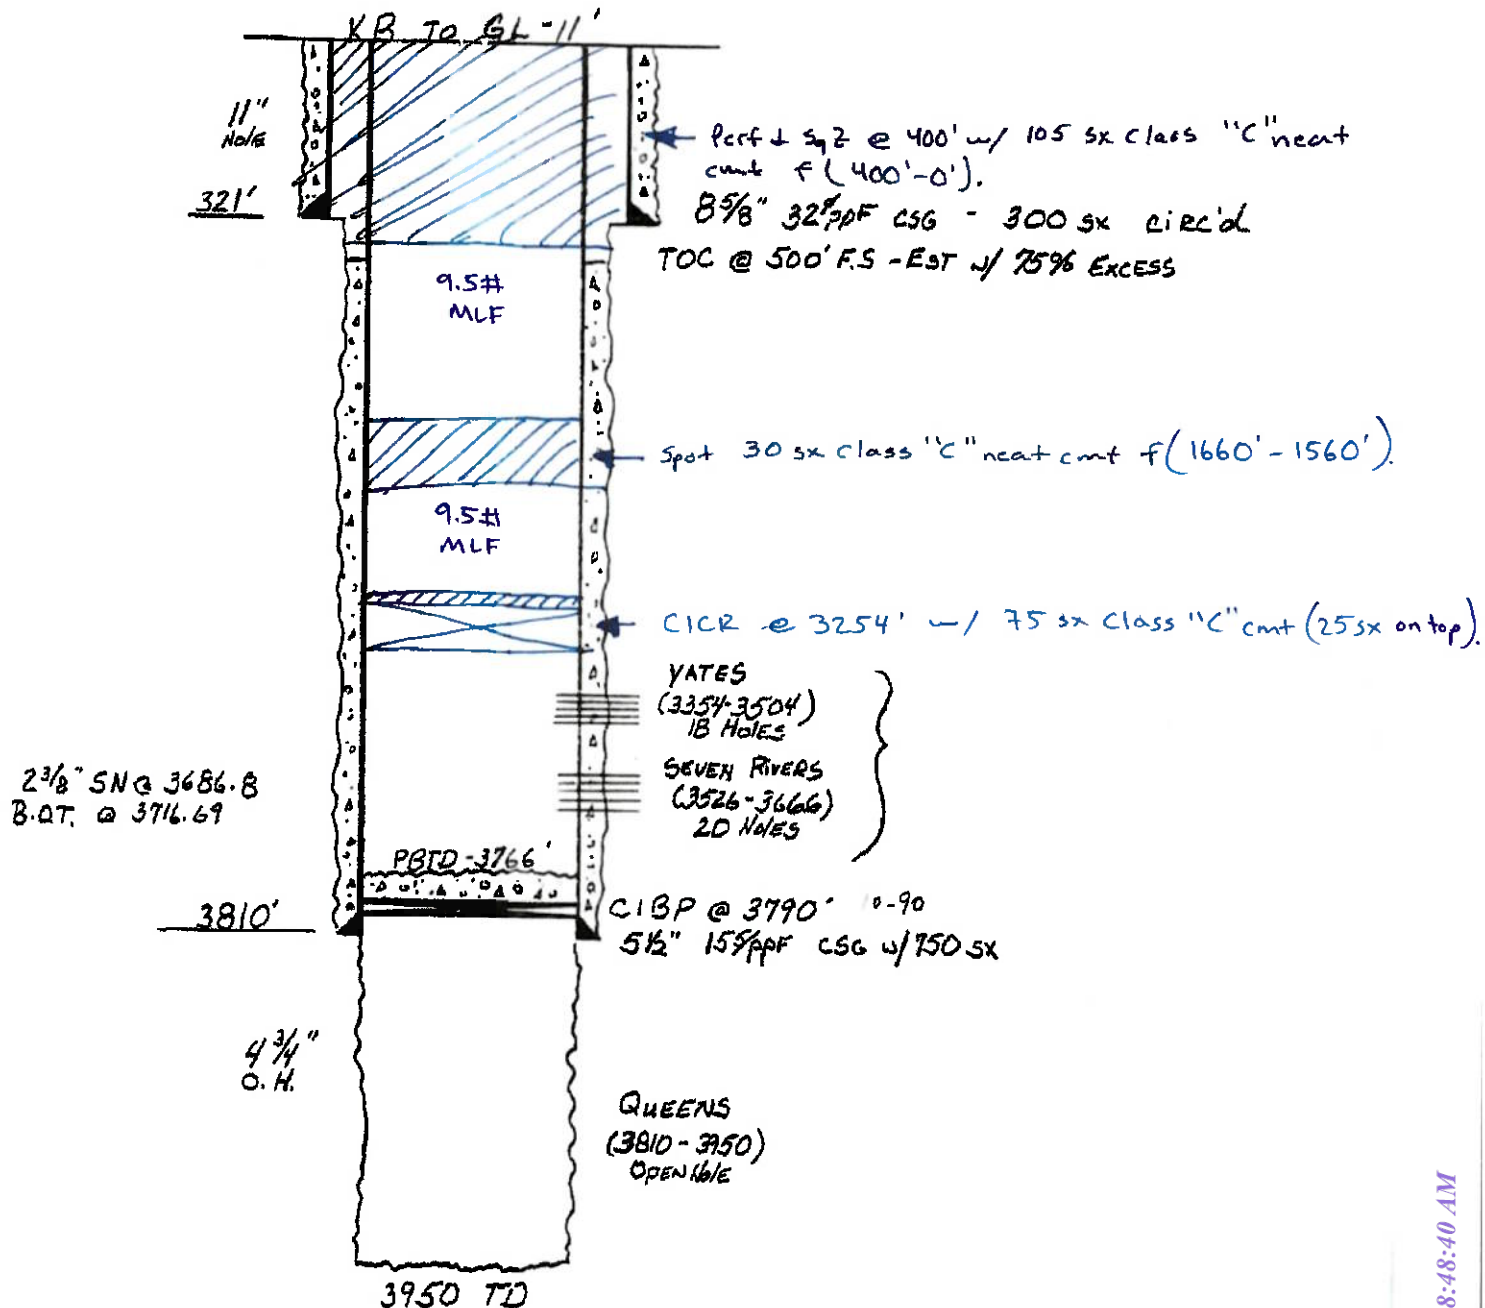 KB TO GL-11'
11"
HOLE
321'
Perf + Sqz @ 400' w/ 105 sx class "C" neat
cmt f(400'-0').
8 5/8" 32#/PPF CSG - 300 sx CIRC'd
TOC @ 500' F.S - EST w/ 75% EXCESS
9.5#
MLF
Spot 30 sx class "C" neat cmt f(1660'-1560').
9.5#
MLF
CICR @ 3254' w/ 75 sx Class "C" cmt (25sx on top).
YATES
(3354-3504)
18 HOLES
SEVEN RIVERS
(3526-3666)
20 HOLES
2 3/8" SN @ 3686.8
B.OT. @ 3716.69
PBTD-3766'
3810'
CIBP @ 3790' 10-90
5 1/2" 15.5/PPF CSG w/750 SX
4 3/4"
O.H.
QUEENS
(3810-3950)
OPEN HOLE
3950 TD
8:48:40 AM